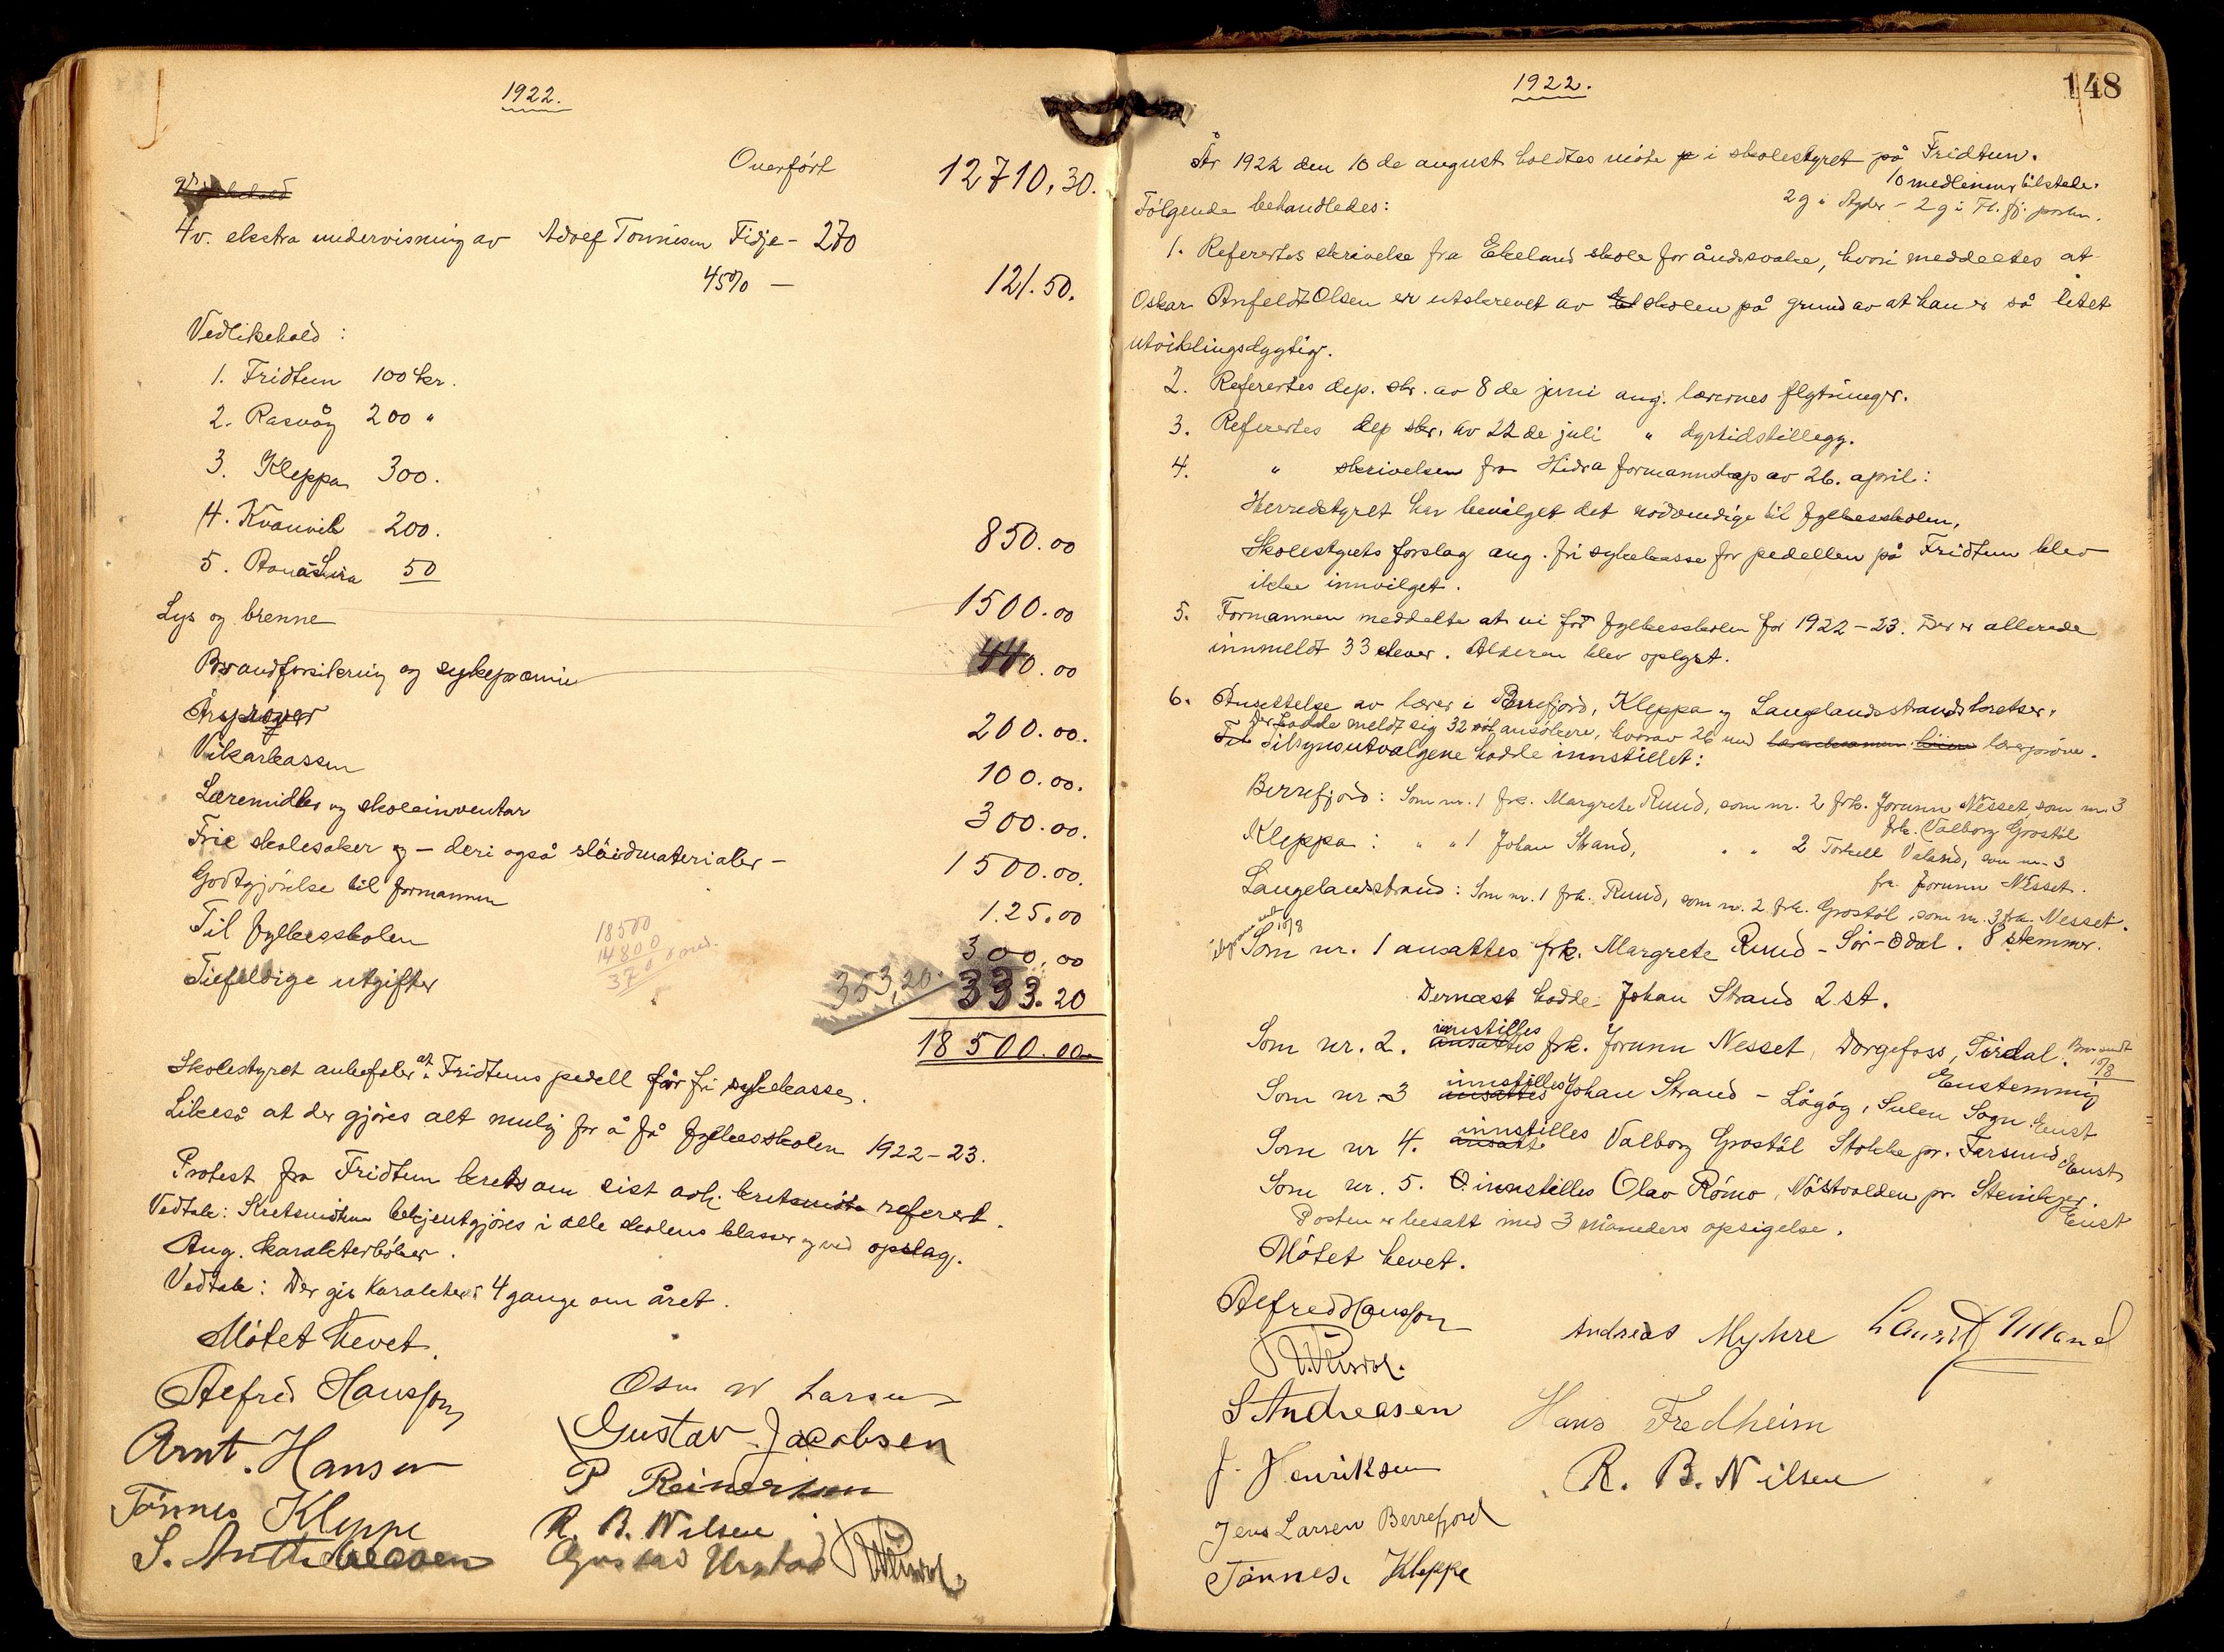 1922.
Overført 12710,30.
4 v. ekstra undervisning av Adolf Tønnesen Fidje - 270
45% - 121.50.
Vedlikehold:
1. Fridtun 100 kr.
2. Rasvåg 200 "
3. Kleppa 300.
4. Kvanvik 200.
5. Åna-Sira 50 850.00
Lys og brenne 1500.00
Brandforsikring og sykepremie 440.00
Årsprøver 200.00.
Vikarkassen 100.00.
Læremidler og skoleinventar 300.00.
Frie skolesaker og - deri også sløidmaterialer - 1500.00.
Godtgjørelse til formannen 125.00
Til fylkesskolen 300,00
Tilfeldige utgifter 353,20 333.20
18500
14800
3700
18500.00
Skolestyret anbefaler at Fridtuns pedell får fri sykekasse.
Likeså at der gjøres alt mulig for å få fylkesskolen 1922-23.
Protest fra Fridtun krets om sist avh. kretsmøte referert.
Vedtak: Kretsmøtene bekjentgjøres i alle skolens klasser og ved opslag.
Ang. karakterbøker.
Vedtak: Der gis karakterer 4 gange om året.
Møtet hevet.
Alfred Hansson
Osm W Larsen
Arnt. Hansen
Gustav Jacobsen
Tønnes Kleppe
P Reinertsen
S. Andreassen
R. B. Nilsen
Gustav Urstad
1922.
148
År 1922 den 10 de august holdtes møte p i skolestyret på Fridtun.
10 medlemmer tilstede.
Følgende behandledes:
2 g i Agder - 2 g i Fl. fj. posten.
1. Referertes skrivelse fra Ekeland skole for åndssvake, hvori meddeeltes at
Oskar Anfeldt Olsen er utskrevet av skolen på grund av at han er så litet
utviklingsdygtig.
2. Referertes dep. skr. av 8 de juni ang. lærernes flytninger.
3. Referertes dep skr. av 22 de juli " dyrtidstillegg.
4. " skrivelsen fra Hidra formannskap av 26. april:
Herredstyret har bevilget det nødvendige til fylkesskolen,
Skolestyrets forslag ang. fri sykekasse for pedellen på Fridtun blev
ikke innvilget.
5. Formannen meddelte at vi får fylkesskolen for 1922-23. Der er allerede
innmeldt 33 elever. Alderen blev oplyst.
6. Ansettelse av lærer i Berrefjord, Kleppa og Langelandsstrands kretser.
Der hadde meldt sig 32 ansøkere, hvorav 26 med lærerprøve.
Tilsynsutvalgene hadde innstillet:
Berrefjord: Som nr. 1 frk. Margrete Ruud, som nr. 2 frk. Jorunn Nesset, som nr. 3
frk. Valborg Grostøl
Kleppa: " " 1 Johan Strand, " " 2 Torkell Valand, som nr. 3
frk. Jorunn Nesset.
Langelandsstrand: Som nr. 1 frk. Ruud, som nr. 2. frk. Grostøl, som nr. 3 frk. Nesset.
10/8
Som nr. 1 ansattes frk. Margrete Ruud - Sør-Odal. 8 stemmer.
Dernæst hadde Johan Strand 2 st.
Som nr. 2. ansattes innstilles frk. Jorunn Nesset, Dorgefoss, Tirdal. Brev sendt 10/8
Enstemmig
Som nr. 3 ansattes innstilles Johan Strand - Lågøy, Sulen Sogn. Enst
Som nr 4. ansatt innstilles Valborg Grostøl Stokke pr. Farsund. Enst
Som nr. 5. innstilles Olav Rømo, Nøstvolden pr. Steinkjer. Enst
Posten er besatt med 3 måneders opsigelse.
Møtet hevet.
Alfred Hansson
Andreas Myhre
Laurits Ulland
S Andreasen
Hans Fredheim
J. Henriksen
R. B. Nilsen
Jens Larsen Berrefjord
Tønnes. Kleppe